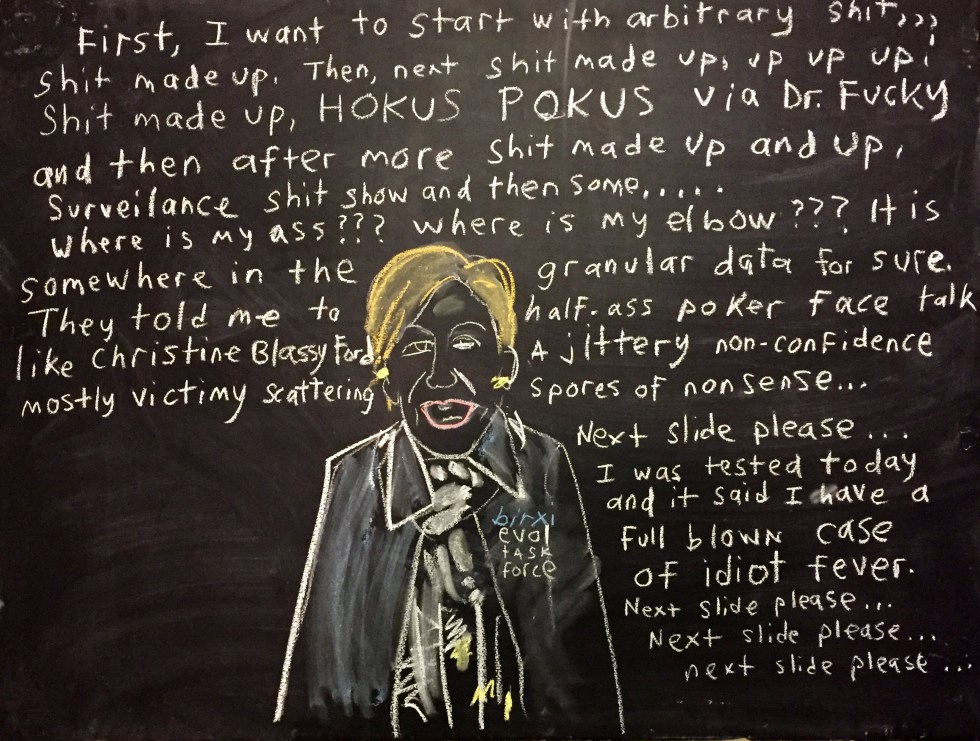 First, I want to start with arbitrary shit,,,
shit made up. Then, next shit made up, up up up!
Shit made up, HOKUS POKUS via Dr. Fucky
and then after more shit made up and up,
Surveilance shit show and then some,....
where is my ass??? where is my elbow??? It is
somewhere in the granular data for sure.
They told me to half-ass poker face talk
like Christine Blassy Ford. A jittery non-confidence
mostly victimy scattering spores of nonsense...
Next slide please...
I was tested today
and it said I have a
full blown case
of idiot fever.
Next slide please...
Next slide please...
next slide please...
birxi
eval
task
force